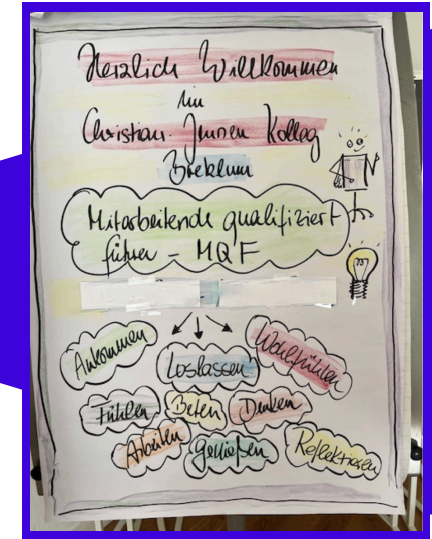 Herzlich Willkommen
im
Christian Jensen Kolleg
Breklum
Mitarbeitende qualifiziert
führen - MQF
Ankommen
Loslassen
Wohlfühlen
Fühlen
Beten
Denken
Arbeiten
genießen
Reflektieren